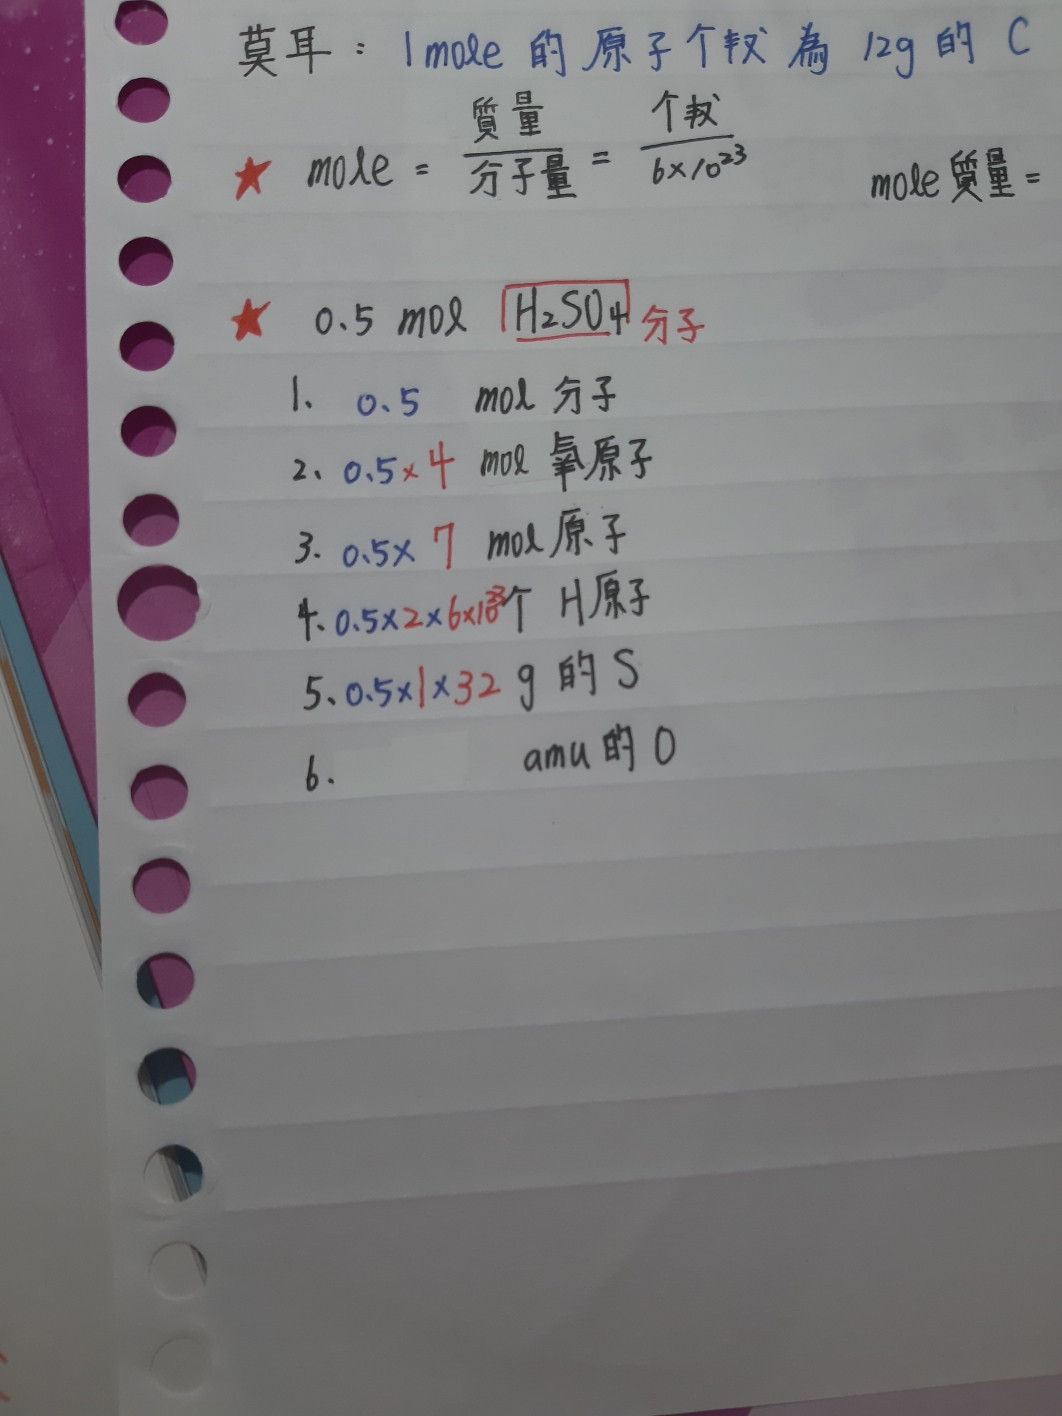 莫耳：1mole 的原子个数為 12g 的 C
★ mole = 質量/分子量 = 个数/6×10²³ mole質量=
★ 0.5 mol H₂SO₄ 分子
1、 0.5 mol 分子
2、 0.5×4 mol 氧原子
3. 0.5×7 mol 原子
4、0.5×2×6×10²³个 H原子
5、0.5×1×32 g 的 S
6. amu 的 O